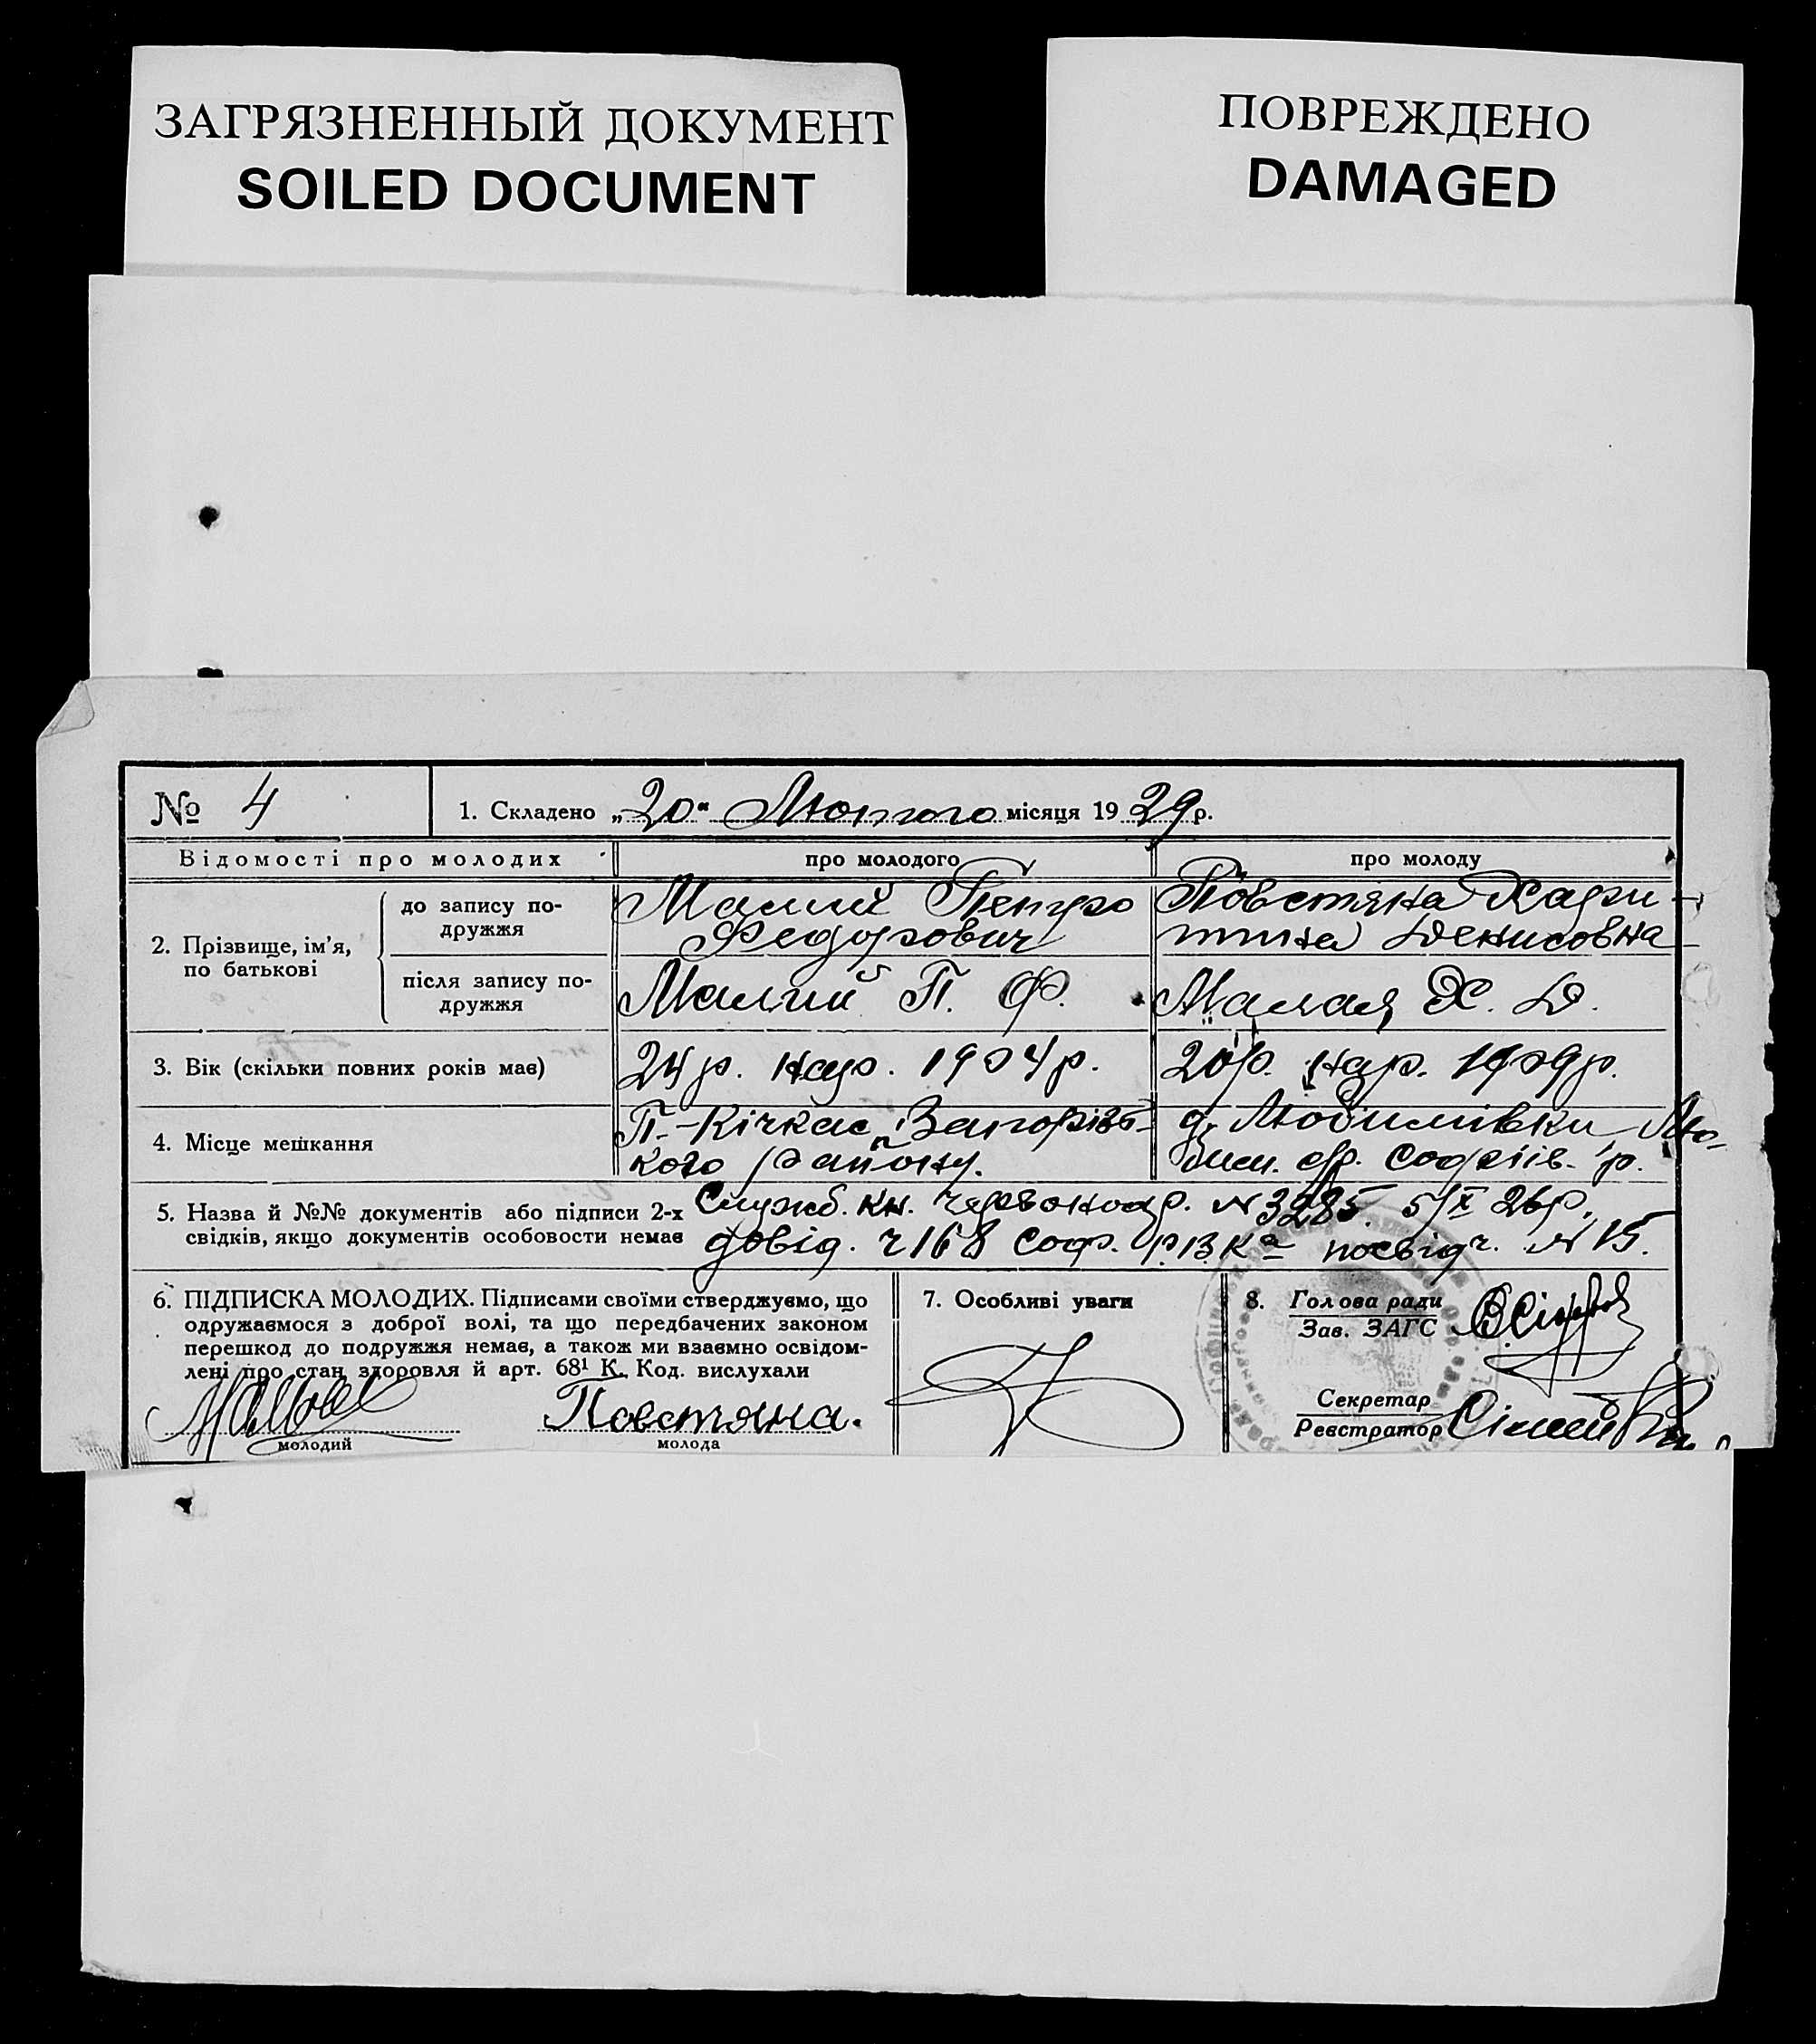 ЗАГРЯЗНЕННЫЙ ДОКУМЕНТ
SOILED DOCUMENT
ПОВРЕЖДЕНО
DAMAGED
№ 4
1. Складено „20“ Лютого місяця 1929 р.
Відомості про молодих
про молодого
про молоду
2. Прізвище, ім’я,
по батькові
до запису по-
дружжя
Малий Петро
Федорович
Повстяна Хари-
тина Денисовна
після запису по-
дружжя
Малий П. Ф.
Малая Х. Д.
3. Вік (скільки повних років має)
24 р. нар. 1904 р.
20 р. нар. 1909 р.
4. Місце мешкання
П.-Кічкас Запорізь-
кого району.
д. Любимівки Лю-
бим. с/р. Софіїв. р.
5. Назва й №№ документів або підписи 2-х
свідків, якщо документів особовости немає
Служб. кн. червоноар. № 3285. 5/X 26 р.
довід. ч 168 Соф. РВКа посвідч. № 15.
6. ПІДПИСКА МОЛОДИХ. Підписами своїми стверджуємо, що
одружаємося з доброї волі, та що передбачених законом
перешкод до подружжя немає, а також ми взаємно освідом-
лені про стан здоровля й арт. 68¹ К. Код. вислухали
молодий
Повстяна.
молода
7. Особливі уваги
8. Голова ради
Зав. ЗАГС
Секретар
Реєстратор